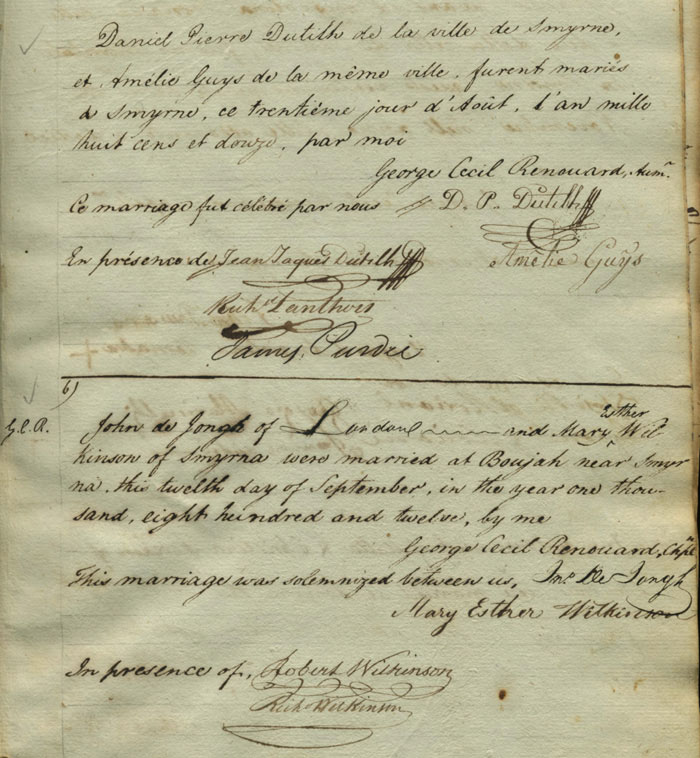 Daniel Pierre Dutilh de la ville de Smyrne,
et Amélie Guys de la même ville, furent mariés
à Smyrne, ce trentiéme jour d'Août, l'an mille
huit cens et douze, par moi
George Cecil Renouard, Aumr.
Ce marriage fut célébré par nous D. P. Dutilh
Amélie Guÿs
En présence de Jean Jaques Dutilh
Richd.
James Purdie
6)
G.C.R. John de Jongh of London and Mary Esther Wil
kinson of Smyrna were married at Boujah near Smyr
na, this twelfth day of September, in the year one thou-
sand, eight hundred and twelve, by me
George Cecil Renouard, Chpln
This marriage was solemnized between us, Jno. De Jongh
Mary Esther Wilkinson
In presence of, Robert Wilkinson
Richd Wilkinson